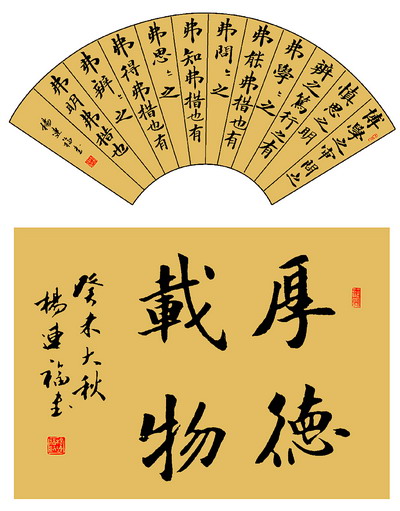 博學之審問之
慎思之明
辨之篤行之有
弗學〻之
弗能弗措也有
弗問〻之
弗知弗措也有
弗思〻之
弗得弗措也有
弗辨〻之
弗明弗措也
楊連福書
厚德
載物
癸未大秋
楊連福書